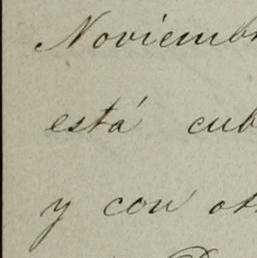 Noviemb
está cub
y con ot